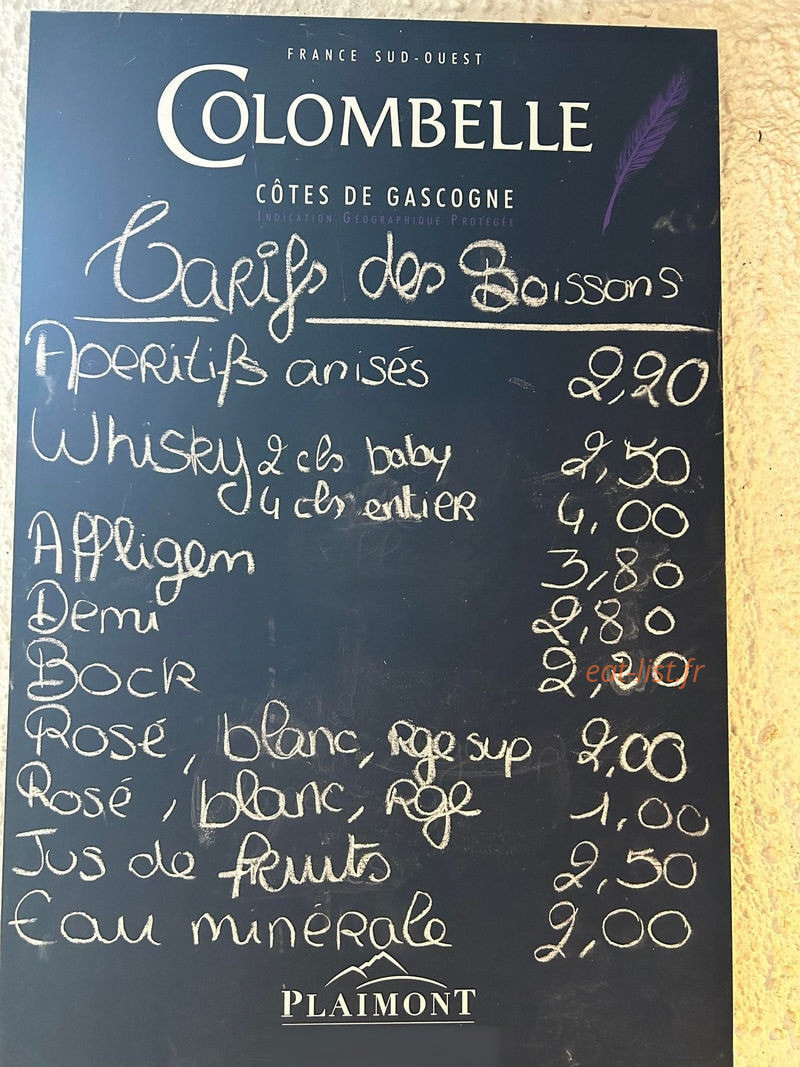 FRANCE SUD-OUEST
COLOMBELLE
CÔTES DE GASCOGNE
INDICATION GÉOGRAPHIQUE PROTÉGÉE
Tarifs des Boissons
Apéritifs anisés 2,20
Whisky 2 cls baby 2,50
4 cls entier 4,00
Affligem 3,80
Demi 2,80
Bock 2,30
eat-list.fr
Rosé, blanc, Rge sup 2,00
Rosé, blanc, Rge 1,00
Jus de fruits 2,50
Eau minérale 2,00
PLAIMONT